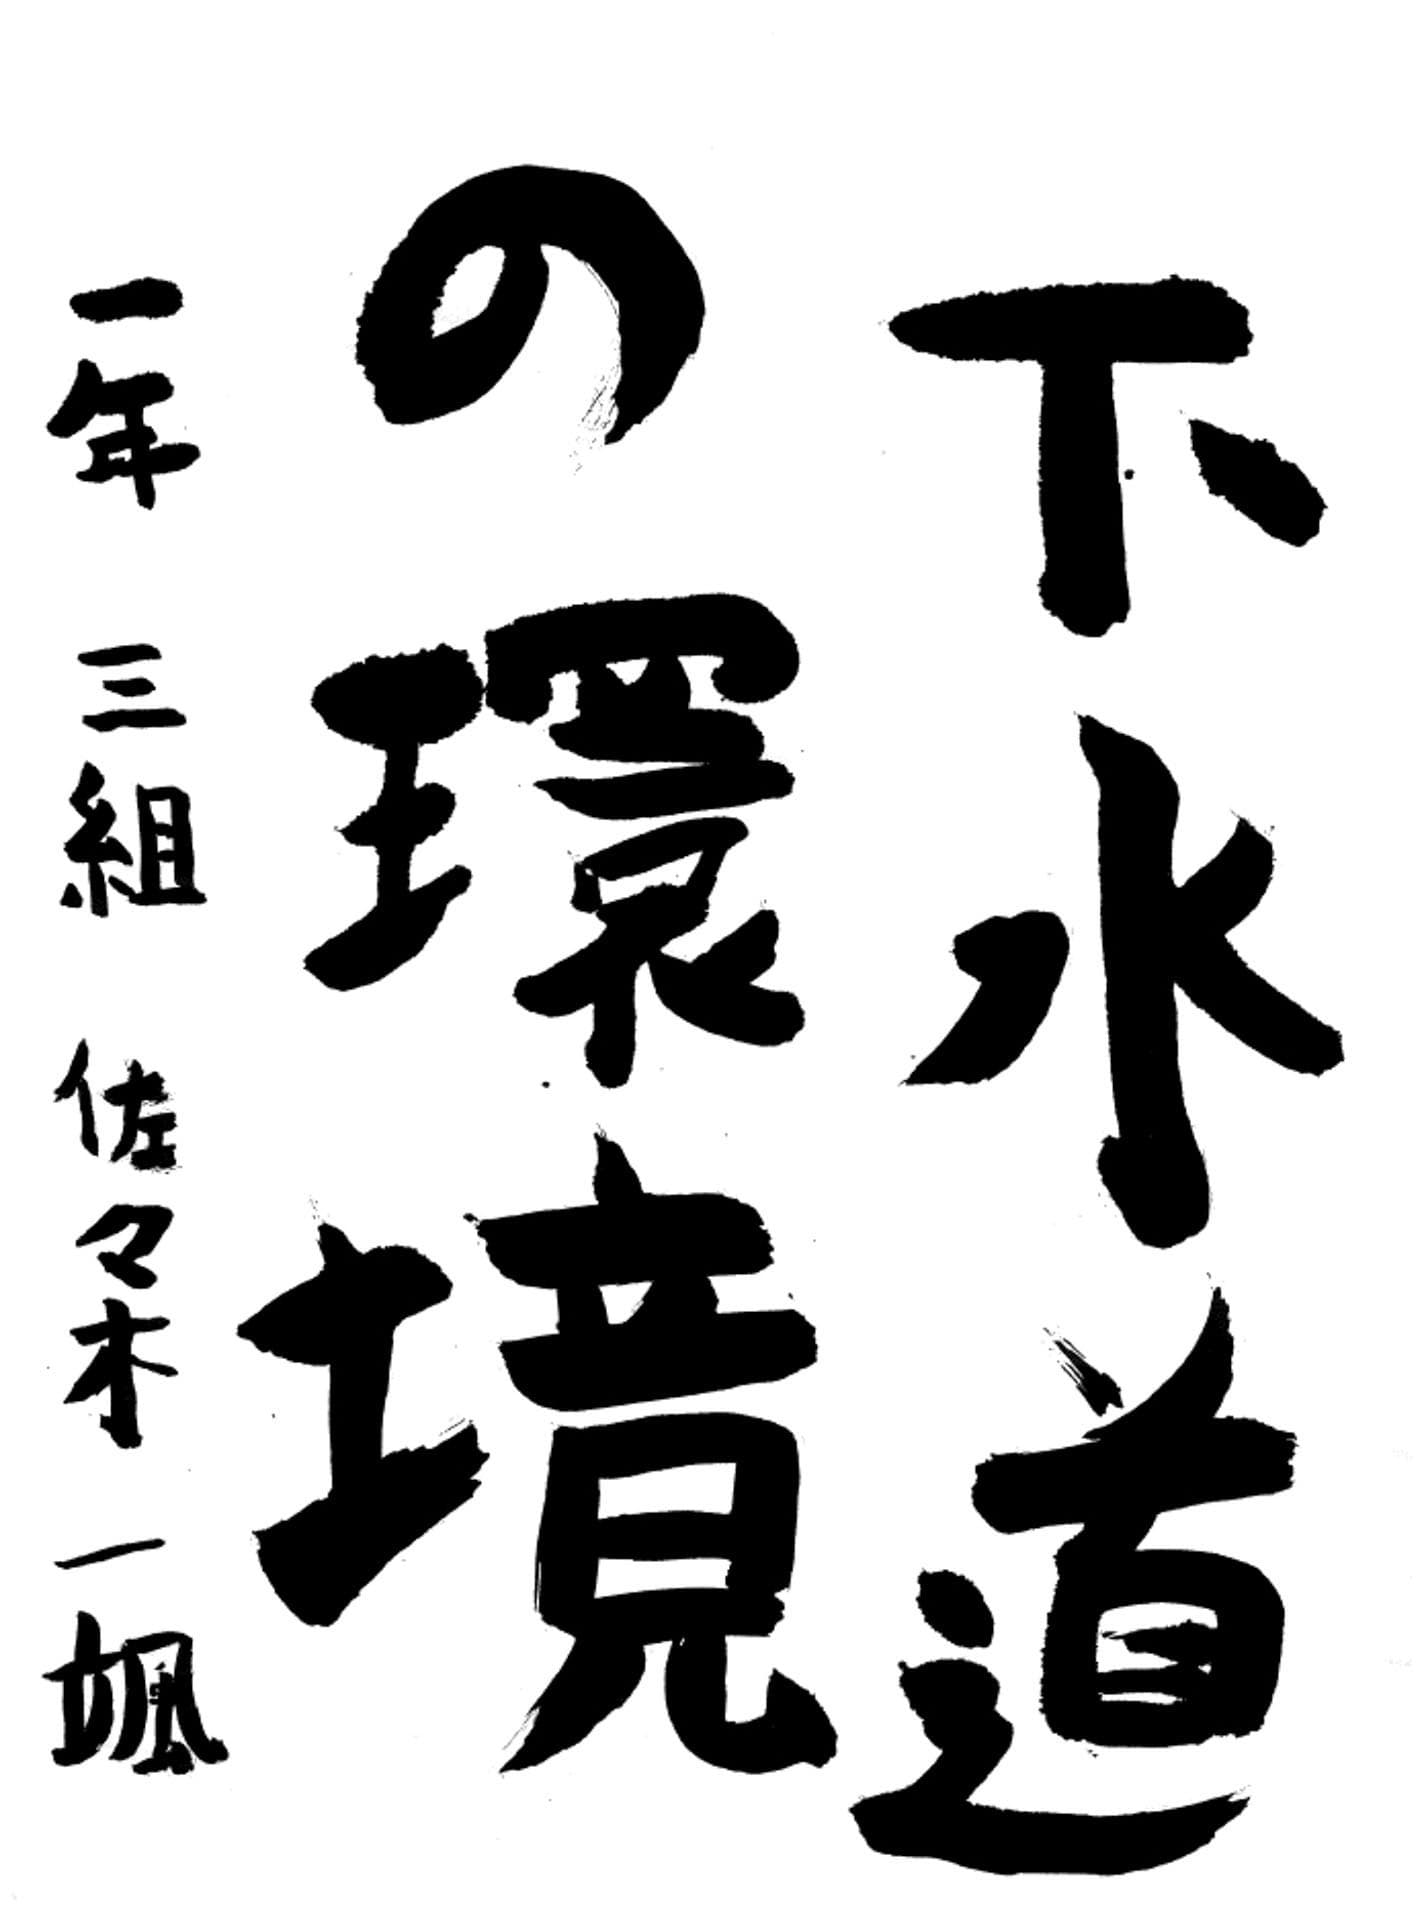 下水道
の環境
一年 三組 佐々木 一颯